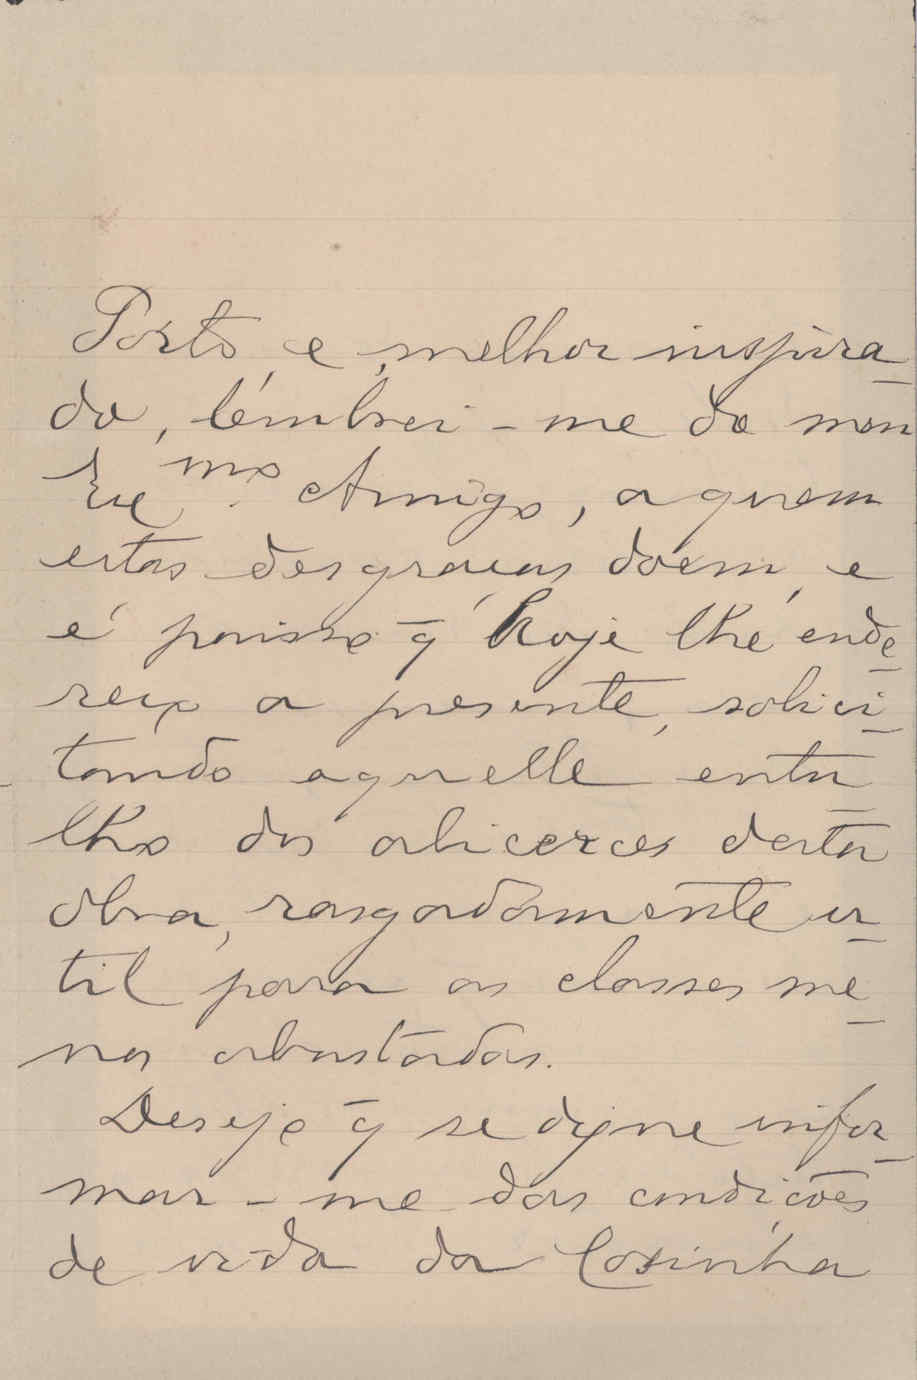 Porto, e, melhor inspira-
do, lembrei-me do meu
Exmo. Amigo, a quem
estas desgraças doem, e
é por isso q̄ hoje lhe ende-
reço a presente, solici-
tando aquelle entu-
lho dos alicerces desta
obra, rasgadamente u-
til para as classes me-
nos abastadas.
Desejo q̄ se digne infor-
mar-me das condições
de vida da Cosinha